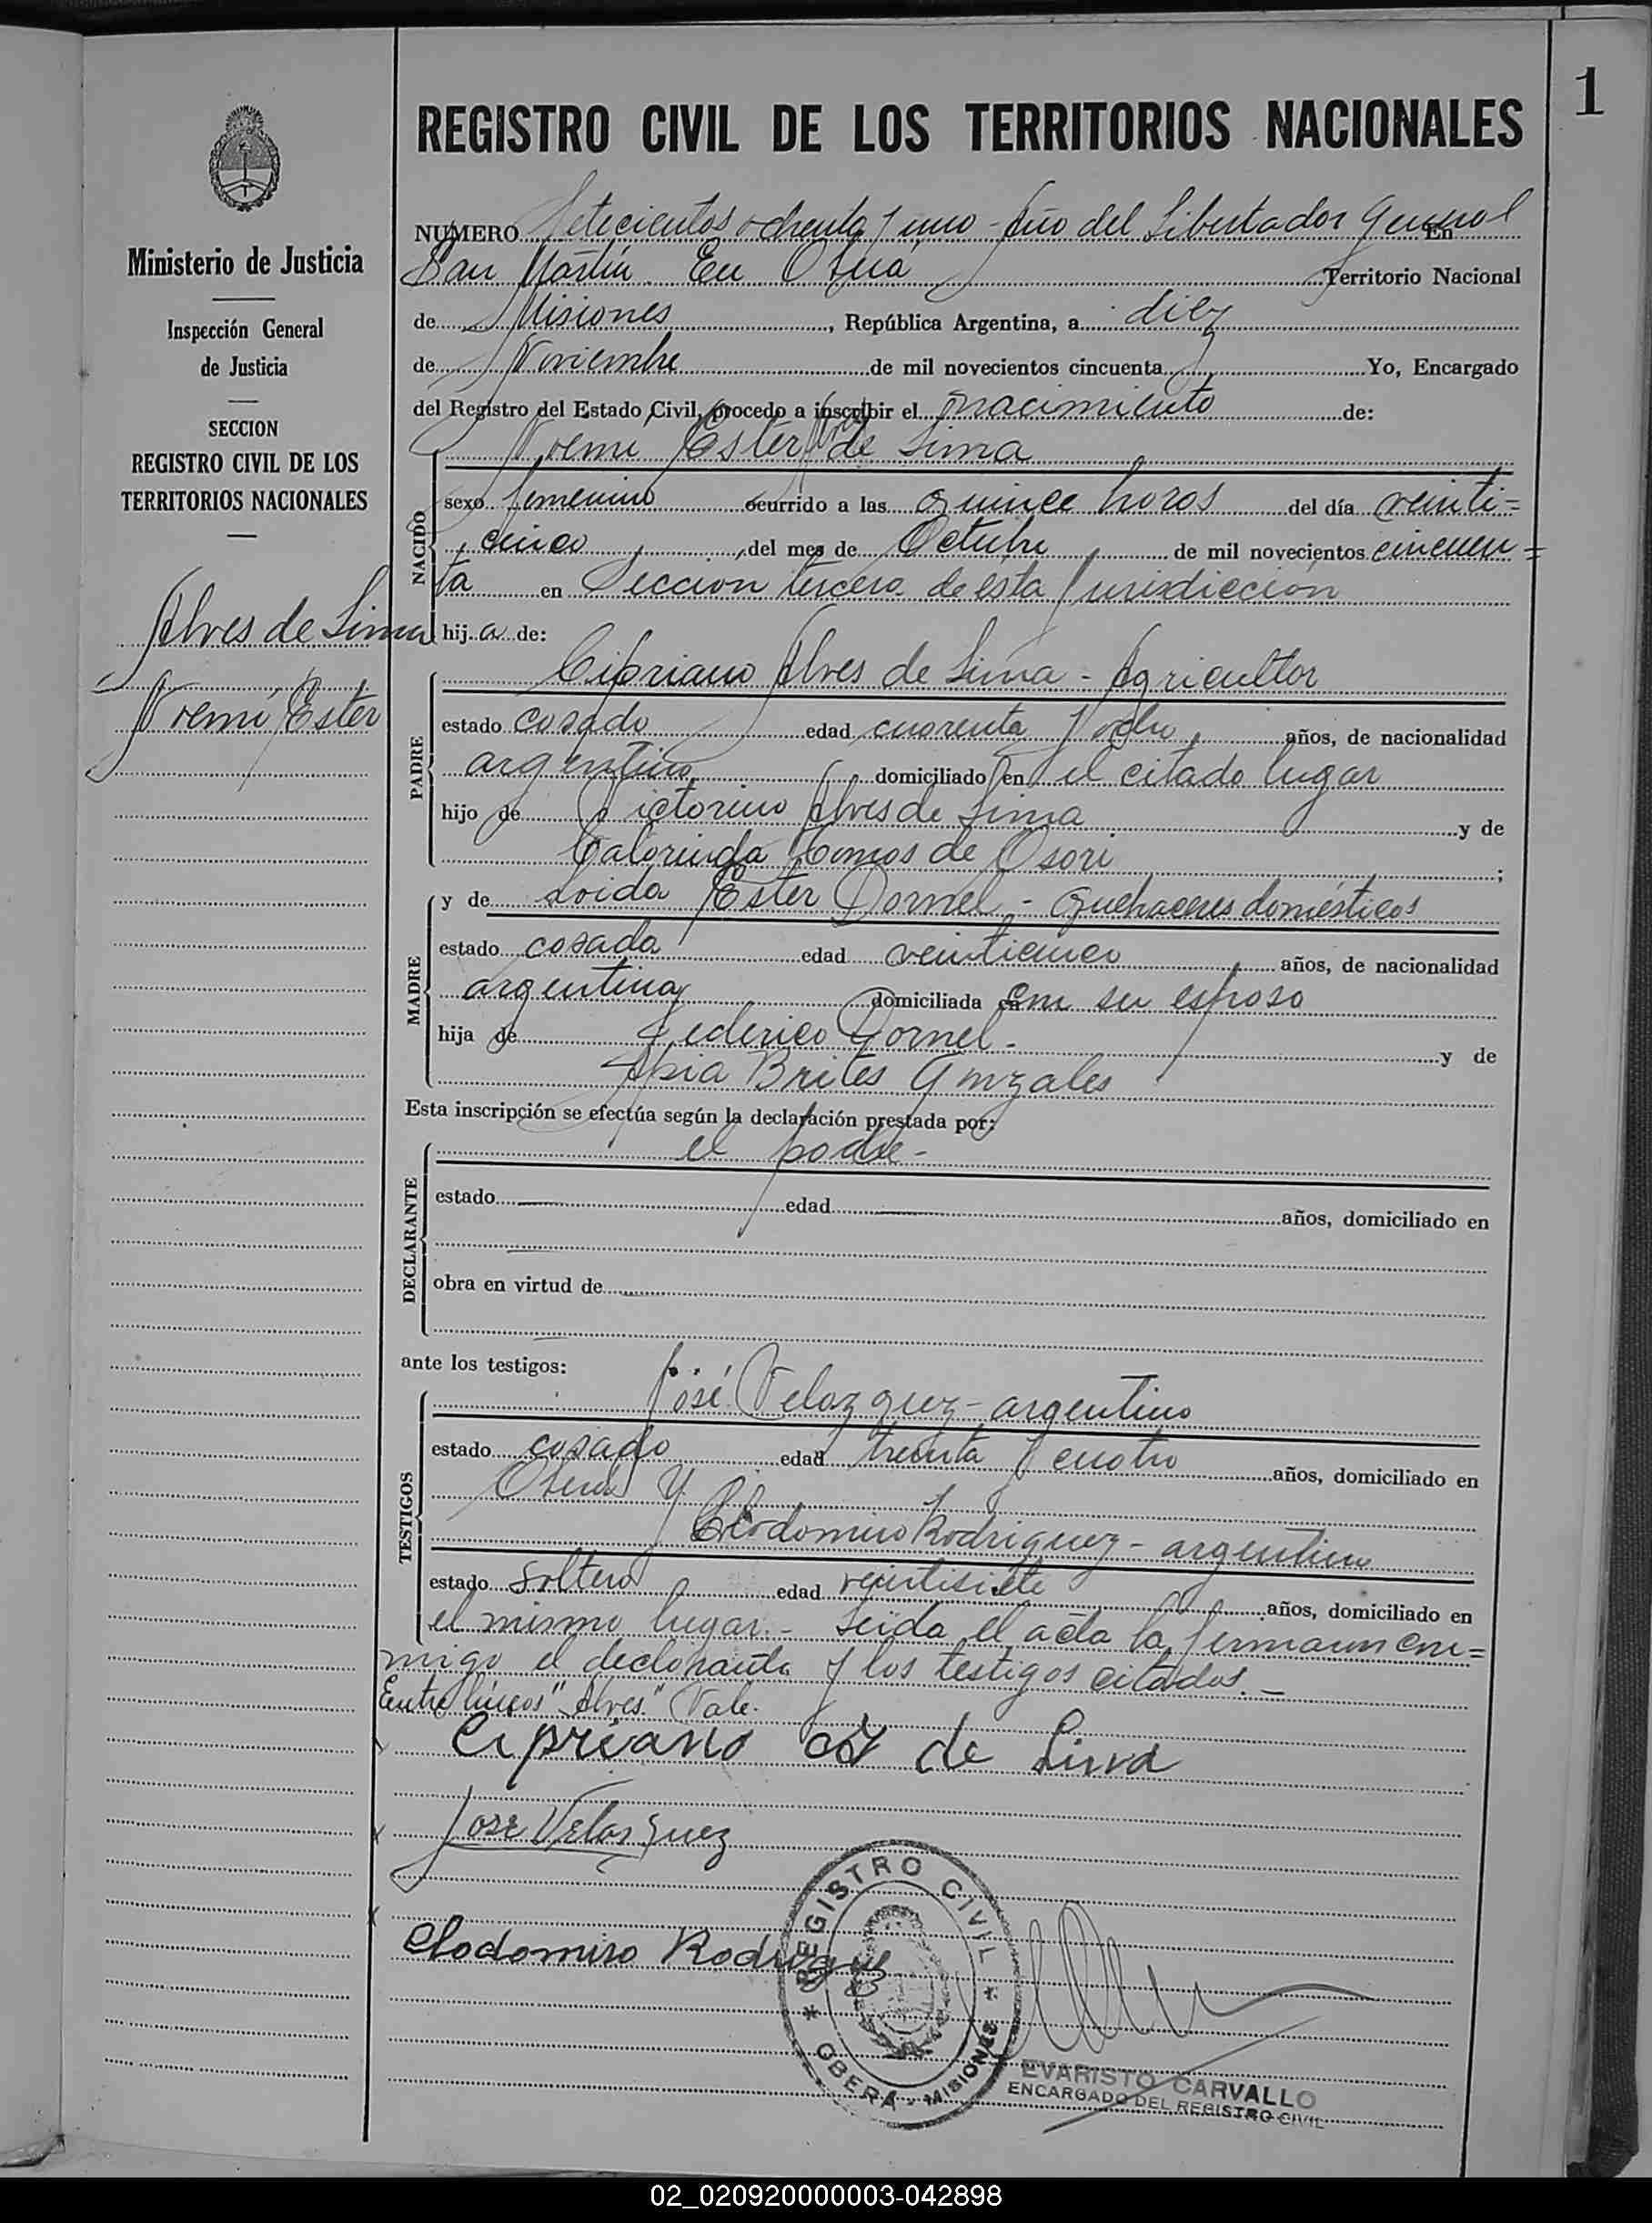 1
REGISTRO CIVIL DE LOS TERRITORIOS NACIONALES
Ministerio de Justicia
Inspección General
de Justicia
SECCION
REGISTRO CIVIL DE LOS
TERRITORIOS NACIONALES
Alves de Lima
Noemí Ester
NUMERO Setecientos ochenta y uno - Año del Libertador General En
San Martín. En Oberá Territorio Nacional
de Misiones, República Argentina, a diez
de Noviembre de mil novecientos cincuenta Yo, Encargado
del Registro del Estado Civil, procedo a inscribir el nacimiento de:
Noemi Ester Alves de Lima
NACIDO
sexo femenino ocurrido a las quince horas del día veinti=
cinco, del mes de Octubre de mil novecientos cincuen=
ta en Sección tercera de ésta Jurisdiccion
hija de:
PADRE
Cipriano Alves de Lima - Agricultor
estado casado edad cuarenta y ocho años, de nacionalidad
argentino domiciliado en el citado lugar
hijo de Victorino Alves de Lima y de
de Osori;
MADRE
y de Loida Ester Dornel - quehaceres domésticos
estado casada edad veinticinco años, de nacionalidad
argentina domiciliada con su esposo
hija de Federico Dornel - y de
Brites Gonzales
Esta inscripción se efectúa según la declaración prestada por:
DECLARANTE
el padre -
estado edad años, domiciliado en
obra en virtud de
ante los testigos:
TESTIGOS
José Velazquez - argentino
estado casado edad treinta y cuatro años, domiciliado en
Oberá y
Clodomiro Rodriguez - argentino
estado soltero edad veintisiete años, domiciliado en
el mismo lugar. - Leída el acta la firmaron con=
migo el declarante y los testigos citados. -
Entre líneas "Alves" Vale.
Cipriano de Lima
Jose Velasquez
Clodomiro Rodriguez
REGISTRO CIVIL
* OBERÁ - MISIONES *
EVARISTO CARVALLO
ENCARGADO DEL REGISTRO CIVIL
02_020920000003-042898